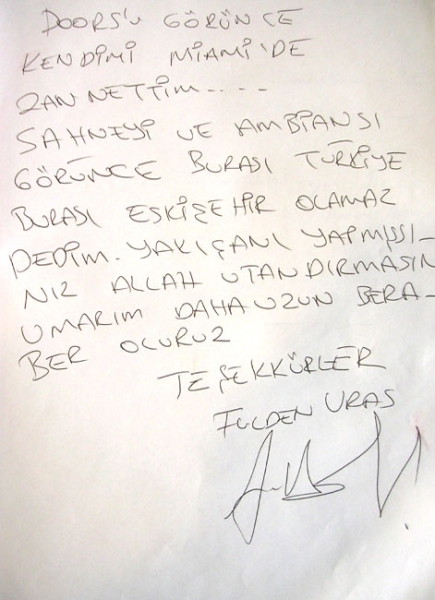 DOORS'U GÖRÜNCE
KENDİMİ MİAMİ'DE
ZANNETTİM.....
SAHNEYİ VE AMBİANSI
GÖRÜNCE BURASI TÜRKİYE
BURASI ESKİŞEHİR OLAMAZ
DEDİM. YAKIŞANI YAPMIŞSI-
NIZ ALLAH UTANDIRMASIN
UMARIM DAHA UZUN BERA-
BER OLURUZ
TEŞEKKÜRLER
FULDEN URAS